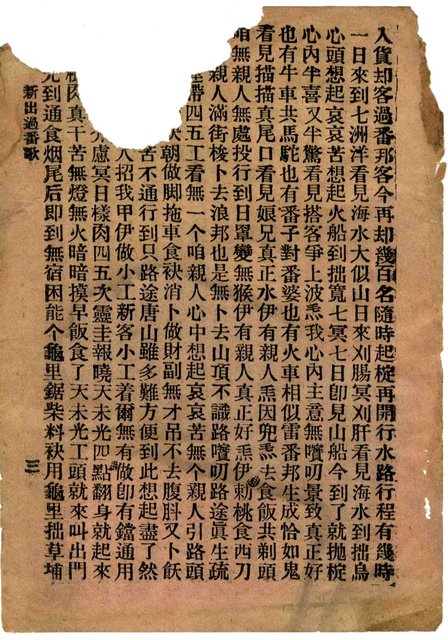 入貨却客過番邦客今再却幾百名隨時起椗再開行水路行程有幾時
一日來到七洲洋看見海水大似山日來刈腸冥刈肝看見海水到拙烏
心頭想起哀哀苦想起火船到拙寬七冥七日卽見山船今到了就拋椗
心內半喜又半驚看見搭客爭上波𤆬我心內主意無嚽叨景致真正好
也有牛車共馬駝也有番子對番婆也有火車相似雷番邦生成恰如鬼
看見描描真尾口看見娘兄真正水伊有親人𤆬因兜𤆬去食飯共剃頭
咱無親人無處投行到日罩變無猴伊有親人真正好𤆬伊勅桃食西刀
親人滿街梭卜去浪邦也是無卜去山頂不識路嚽叨路途眞生疏
帶四五工看無一个咱親人心中想起哀哀苦無个親人引路頭
朝做脚拖車食袂消卜做財副無才吊不去腹肚又卜飫
苦不通行到只路途唐山雖多難方便到此想起盡了然
人招我甲伊做小工新客小工着爾無有做卽有鐺通用
慮冥日樣肉四五次靈圭報曉天未光四點翻身就起來
肉真干苦無燈無火暗暗摸早飯食了天未光工頭就來叫出門
到通食烟尾后即到無宿困能个龜里鋸柴料袂用龜里拙草埔
新出過番歌
三